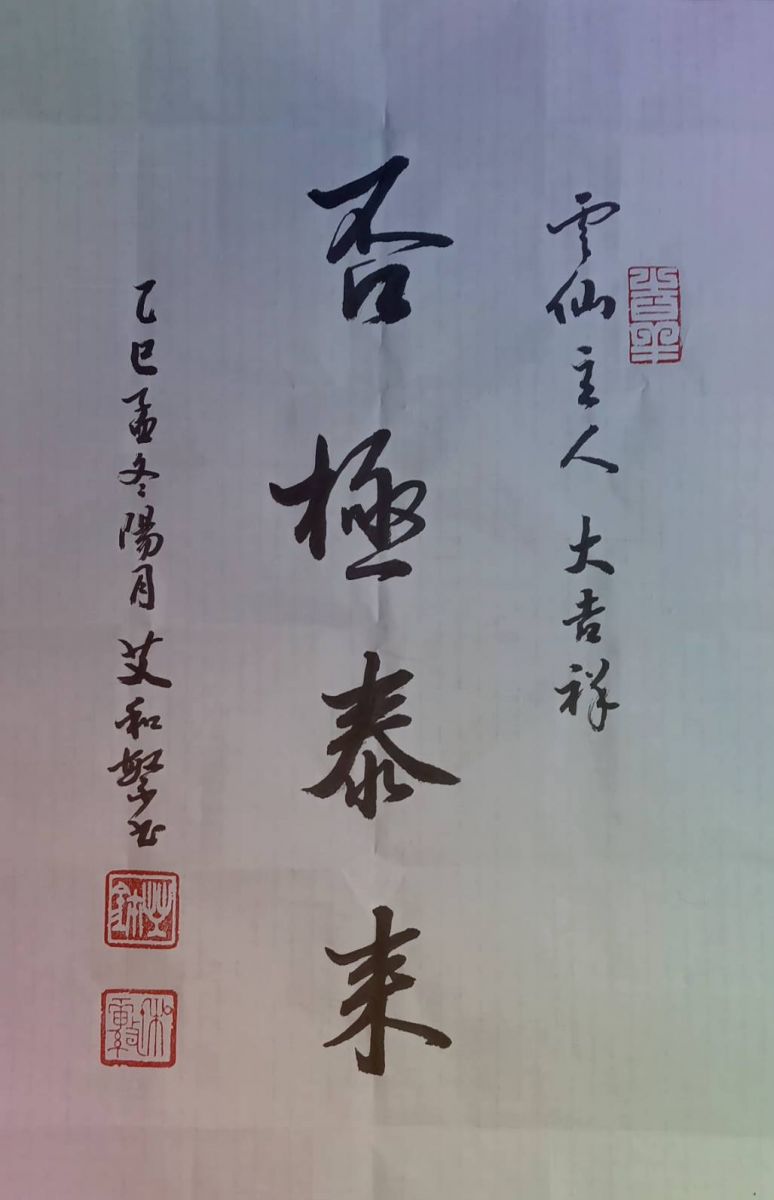 雲仙主人 大吉祥
否極泰来
乙巳孟冬陽月 艾和繁书